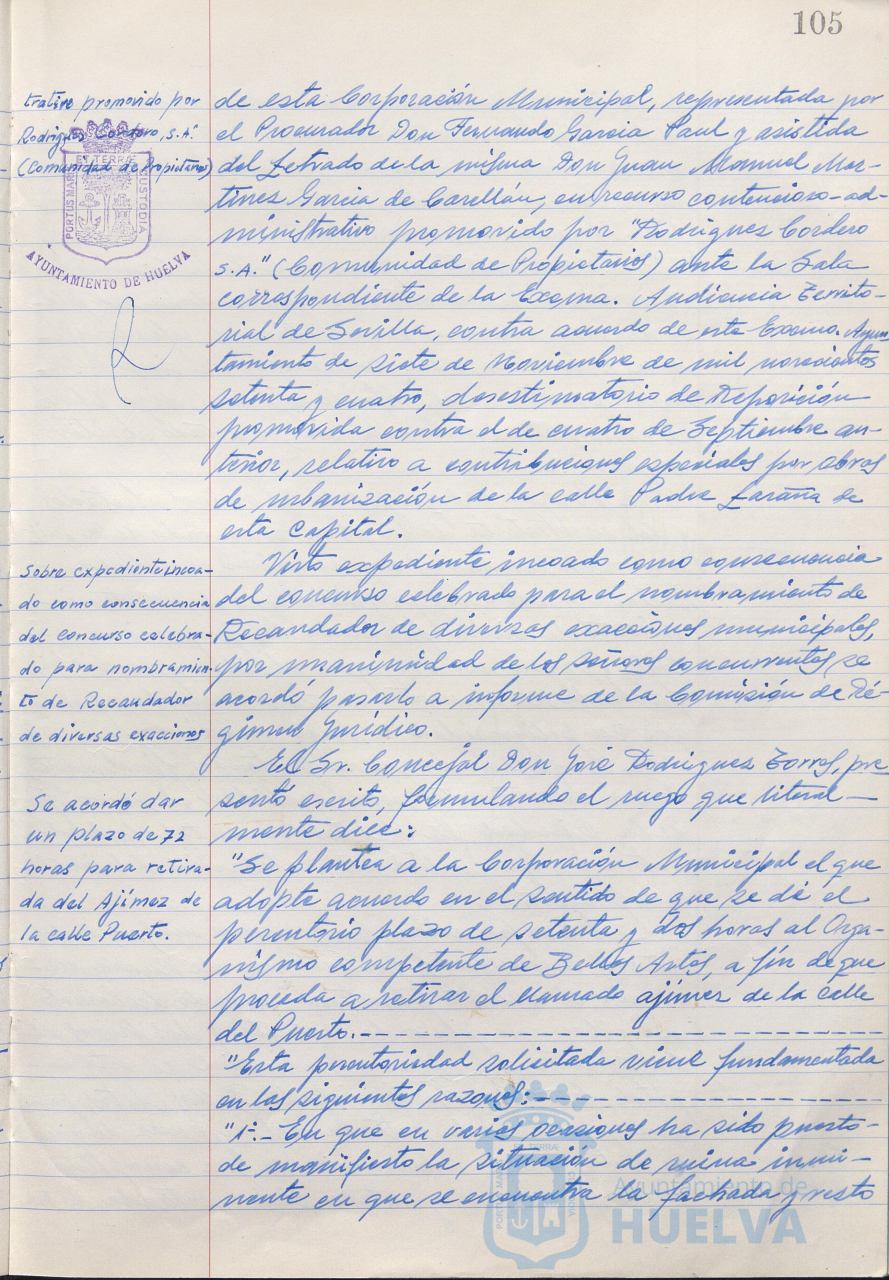 105
trativo promovido por
Rodriguez Cordero, S.A."
(Comunidad de Propietarios)
PORTUS MARIS ET TERRÆ CUSTODIA
AYUNTAMIENTO DE HUELVA
de esta Corporación Municipal, representada por
el Procurador Don Fernando Garcia Paul y asistida
del Letrado de la misma Don Juan Manuel Mar-
tinez Garcia de Carellán, en recurso contencioso-ad-
ministrativo promovido por "Rodriguez Cordero
S.A." (Comunidad de Propietarios) ante la Sala
correspondiente de la Excma. Audiencia Territo-
rial de Sevilla, contra acuerdo de este Excmo. Ayun-
tamiento de siete de Noviembre de mil novecientos
setenta y cuatro, desestimatorio de Reposición
promovida contra el de cuatro de Septiembre an-
terior, relativo a contribuciones especiales por obras
de urbanización de la calle Padre Laraña de
esta Capital.
Sobre expediente incoa-
do como consecuencia
del concurso celebra-
do para nombramien-
to de Recaudador
de diversas exacciones
Visto expediente incoado como consecuencia
del concurso celebrado para el nombramiento de
Recaudador de diversas exacciones municipales,
por unanimidad de los señores concurrentes, se
acordó pasarlo a informe de la Comisión de Ré-
gimen Jurídico.
Se acordó dar
un plazo de 72
horas para retira-
da del Ajímez de
la calle Puerto.
El Sr. Concejal Don José Rodriguez Torres, pre
sentó escrito, formulando el ruego que literal-
mente dice:
"Se plantea a la Corporación Municipal el que
adopte acuerdo en el sentido de que se dé el
perentorio plazo de setenta y dos horas al Orga-
nismo competente de Bellas Artes, a fin de que
proceda a retirar el llamado ajímez de la calle
del Puerto.
"Esta perentoriedad solicitada viene fundamentada
en las siguientes razones:
"1º.- En que en varias ocasiones ha sido puesto
de manifiesto la situación de ruina inmi-
nente en que se encuentra la fachada y resto
Ayuntamiento de
HUELVA